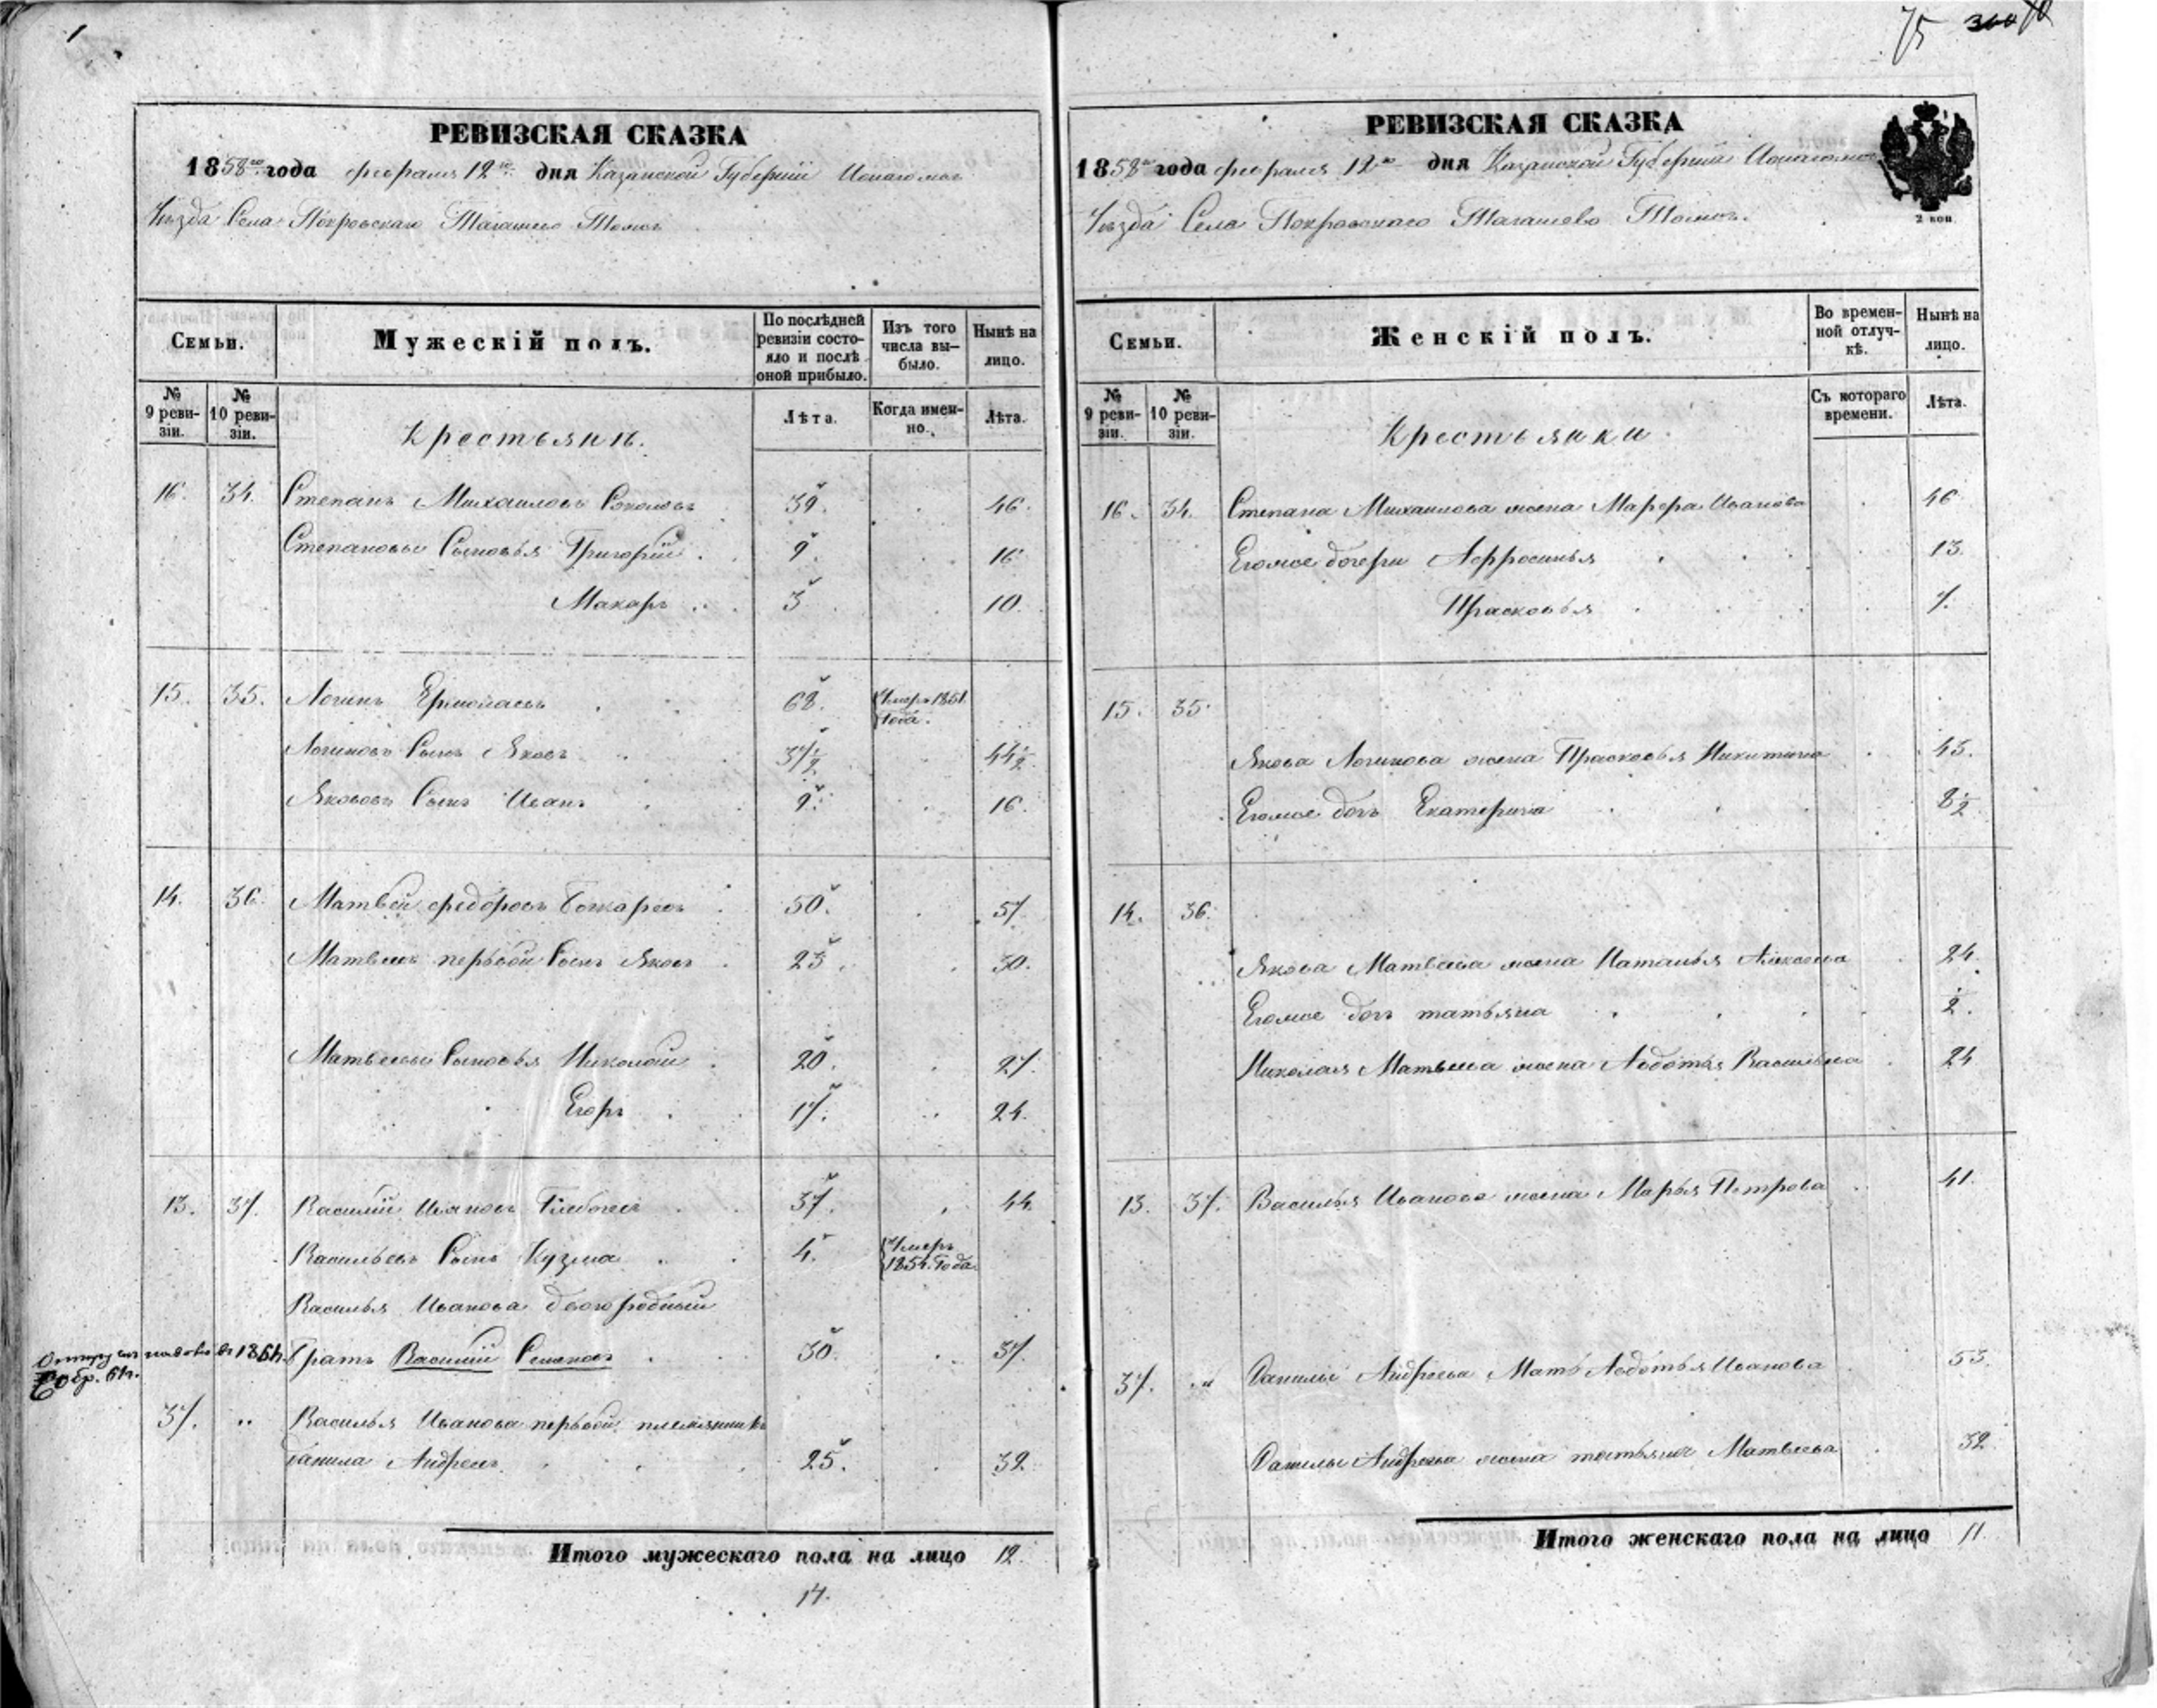 1
РЕВИЗСКАЯ СКАЗКА
1858го года февраля 12го дня Казанской Губерніи
Уѣзда Села Покровскаго Тогашево Тожъ
Семьи.
Мужескій полъ.
По послѣдней ревизіи состояло и послѣ оной прибыло.
Изъ того числа выбыло.
Нынѣ на лицо.
№ 9 ревизіи.
№ 10 ревизіи.
Крестьянъ.
Лѣта.
Когда именно.
Лѣта.
16. 34. Степанъ Михаиловъ 39. 46.
Степановы Сыновья Григорій 9. 16
Макаръ 3 10.
15. 35. Логинъ Ермолаевъ 68. Умеръ 1851 года.
Логиновъ Сынъ Яковъ 37 1/2 44 1/2
Яковлевъ Сынъ Иванъ 9. 16.
14. 36. Матвей Федоровъ 50. 57.
Матвеевъ первой Сынъ Яковъ 23. 30.
Матвеевы Сыновья Николай 20. 27.
Егоръ 17. 24.
13. 37. Василій Ивановъ 37. 44.
Васильевъ Сынъ Кузма 4. Умеръ 1854. Года.
Василья Иванова двоюродный
братъ Василій 30. 37.
въ 1864
обр. 64.
37. " Василья Иванова первой племянникъ
Данила Андреевъ 25. 32.
Итого мужескаго пола на лицо 12.
14.
75 70
РЕВИЗСКАЯ СКАЗКА
1858го года февраля 12го дня Казанской Губерніи
Уѣзда Села Покровскаго Тогашево Тожъ.
2 коп.
Семьи.
Женскій полъ.
Во временной отлучкѣ.
Нынѣ на лицо.
№ 9 ревизіи.
№ 10 ревизіи.
Крестьянки
Съ котораго времени.
Лѣта.
16. 34. Степана Михаилова жена Марфа Иванова 46
Егоже дочери Афросинья 13.
Прасковья 7.
15. 35.
Якова Логинова жена Прасковья Никитина 45.
Егоже дочь Екатерина 8 1/2
14. 36.
Якова Матвеева жена Наталья Алексеева 24.
Егоже дочь татьяна 1/2.
Николая Матвеева жена Авдотья Васильева 24
13. 37. Василья Иванова жена Марья Петрова 41.
37. " Данилы Андреева Мать Авдотья Иванова 53.
Данилы Андреева жена татьяна Матвеева 32.
Итого женскаго пола на лицо 11.